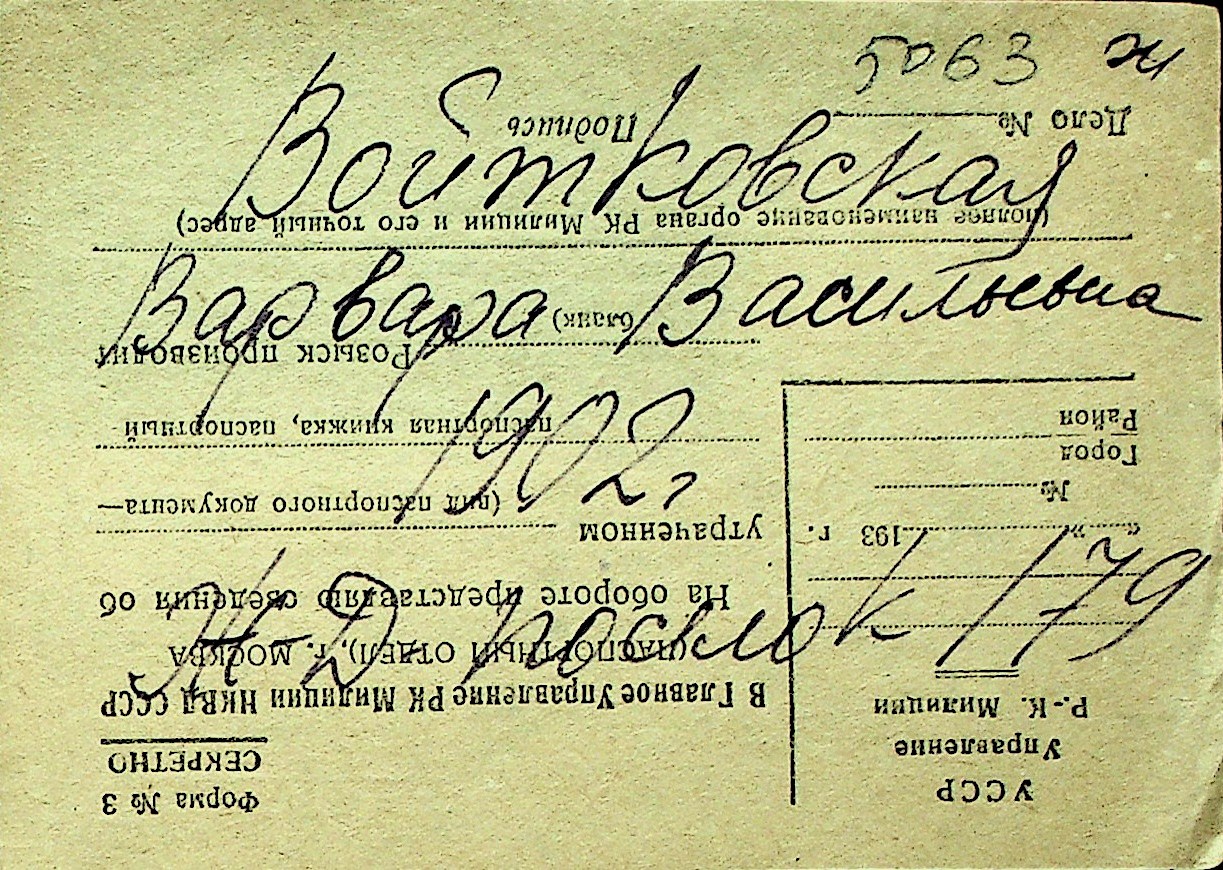 5063 ж
Войтковская
Варвара Васильевна
1902 г,
Ж-Д поселок 179
Форма № 3
СЕКРЕТНО
УССР
Управление
Р.-К. Милиции
„ “ 193 г.
№
Город
Район
В Главное Управление РК Милиции НКВД СССР
(ПАСПОРТНЫЙ ОТДЕЛ), г. МОСКВА
На обороте представляю сведения об
утраченном
(вид паспортного документа—
паспортная книжка, паспортный
бланк)
Розыск производит
(полное наименование органа РК Милиции и его точный адрес)
Дело № Подпись